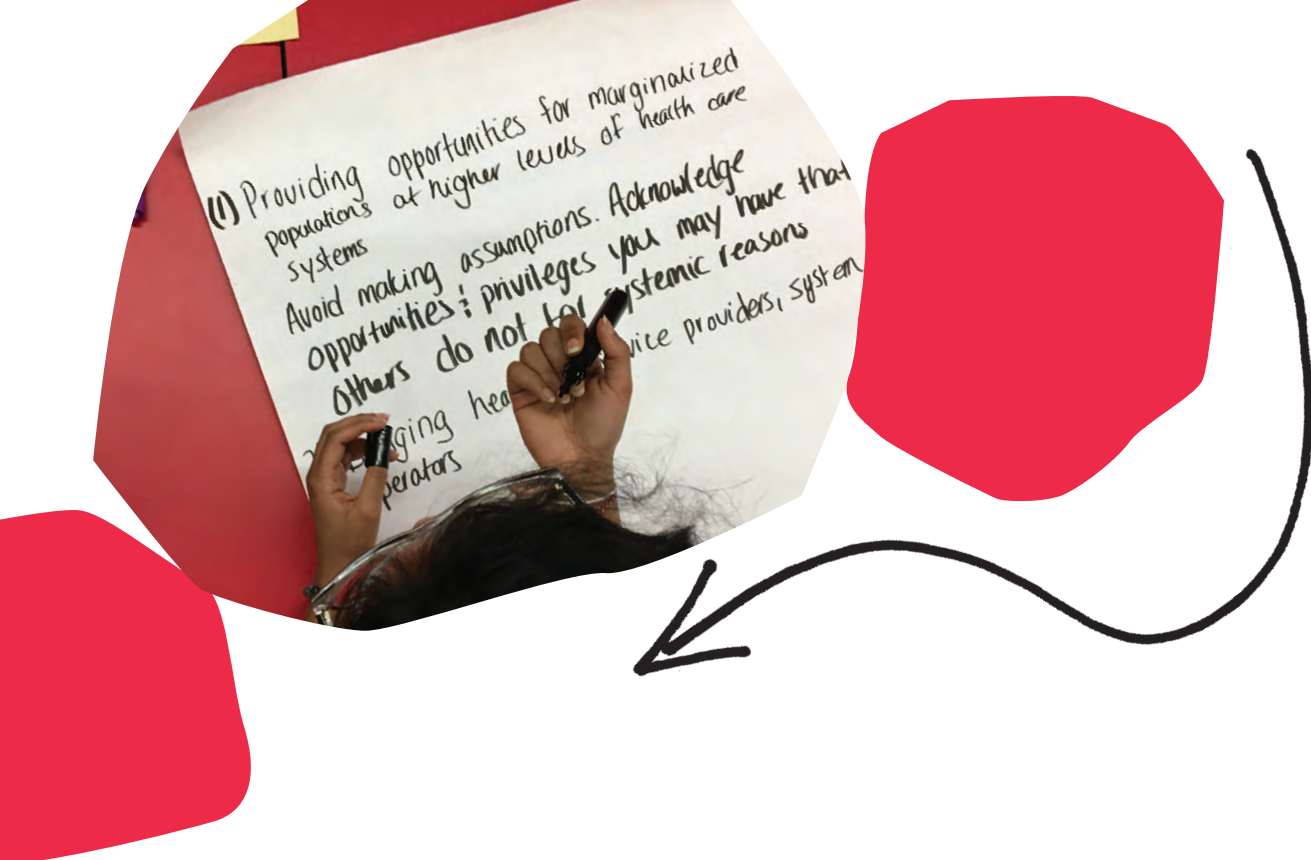 (1) Providing opportunities for marginalized
populations at higher levels of health care
systems
Avoid making assumptions. Acknowledge
opportunities & privileges you may have that
others do not for systemic reasons
providers, system